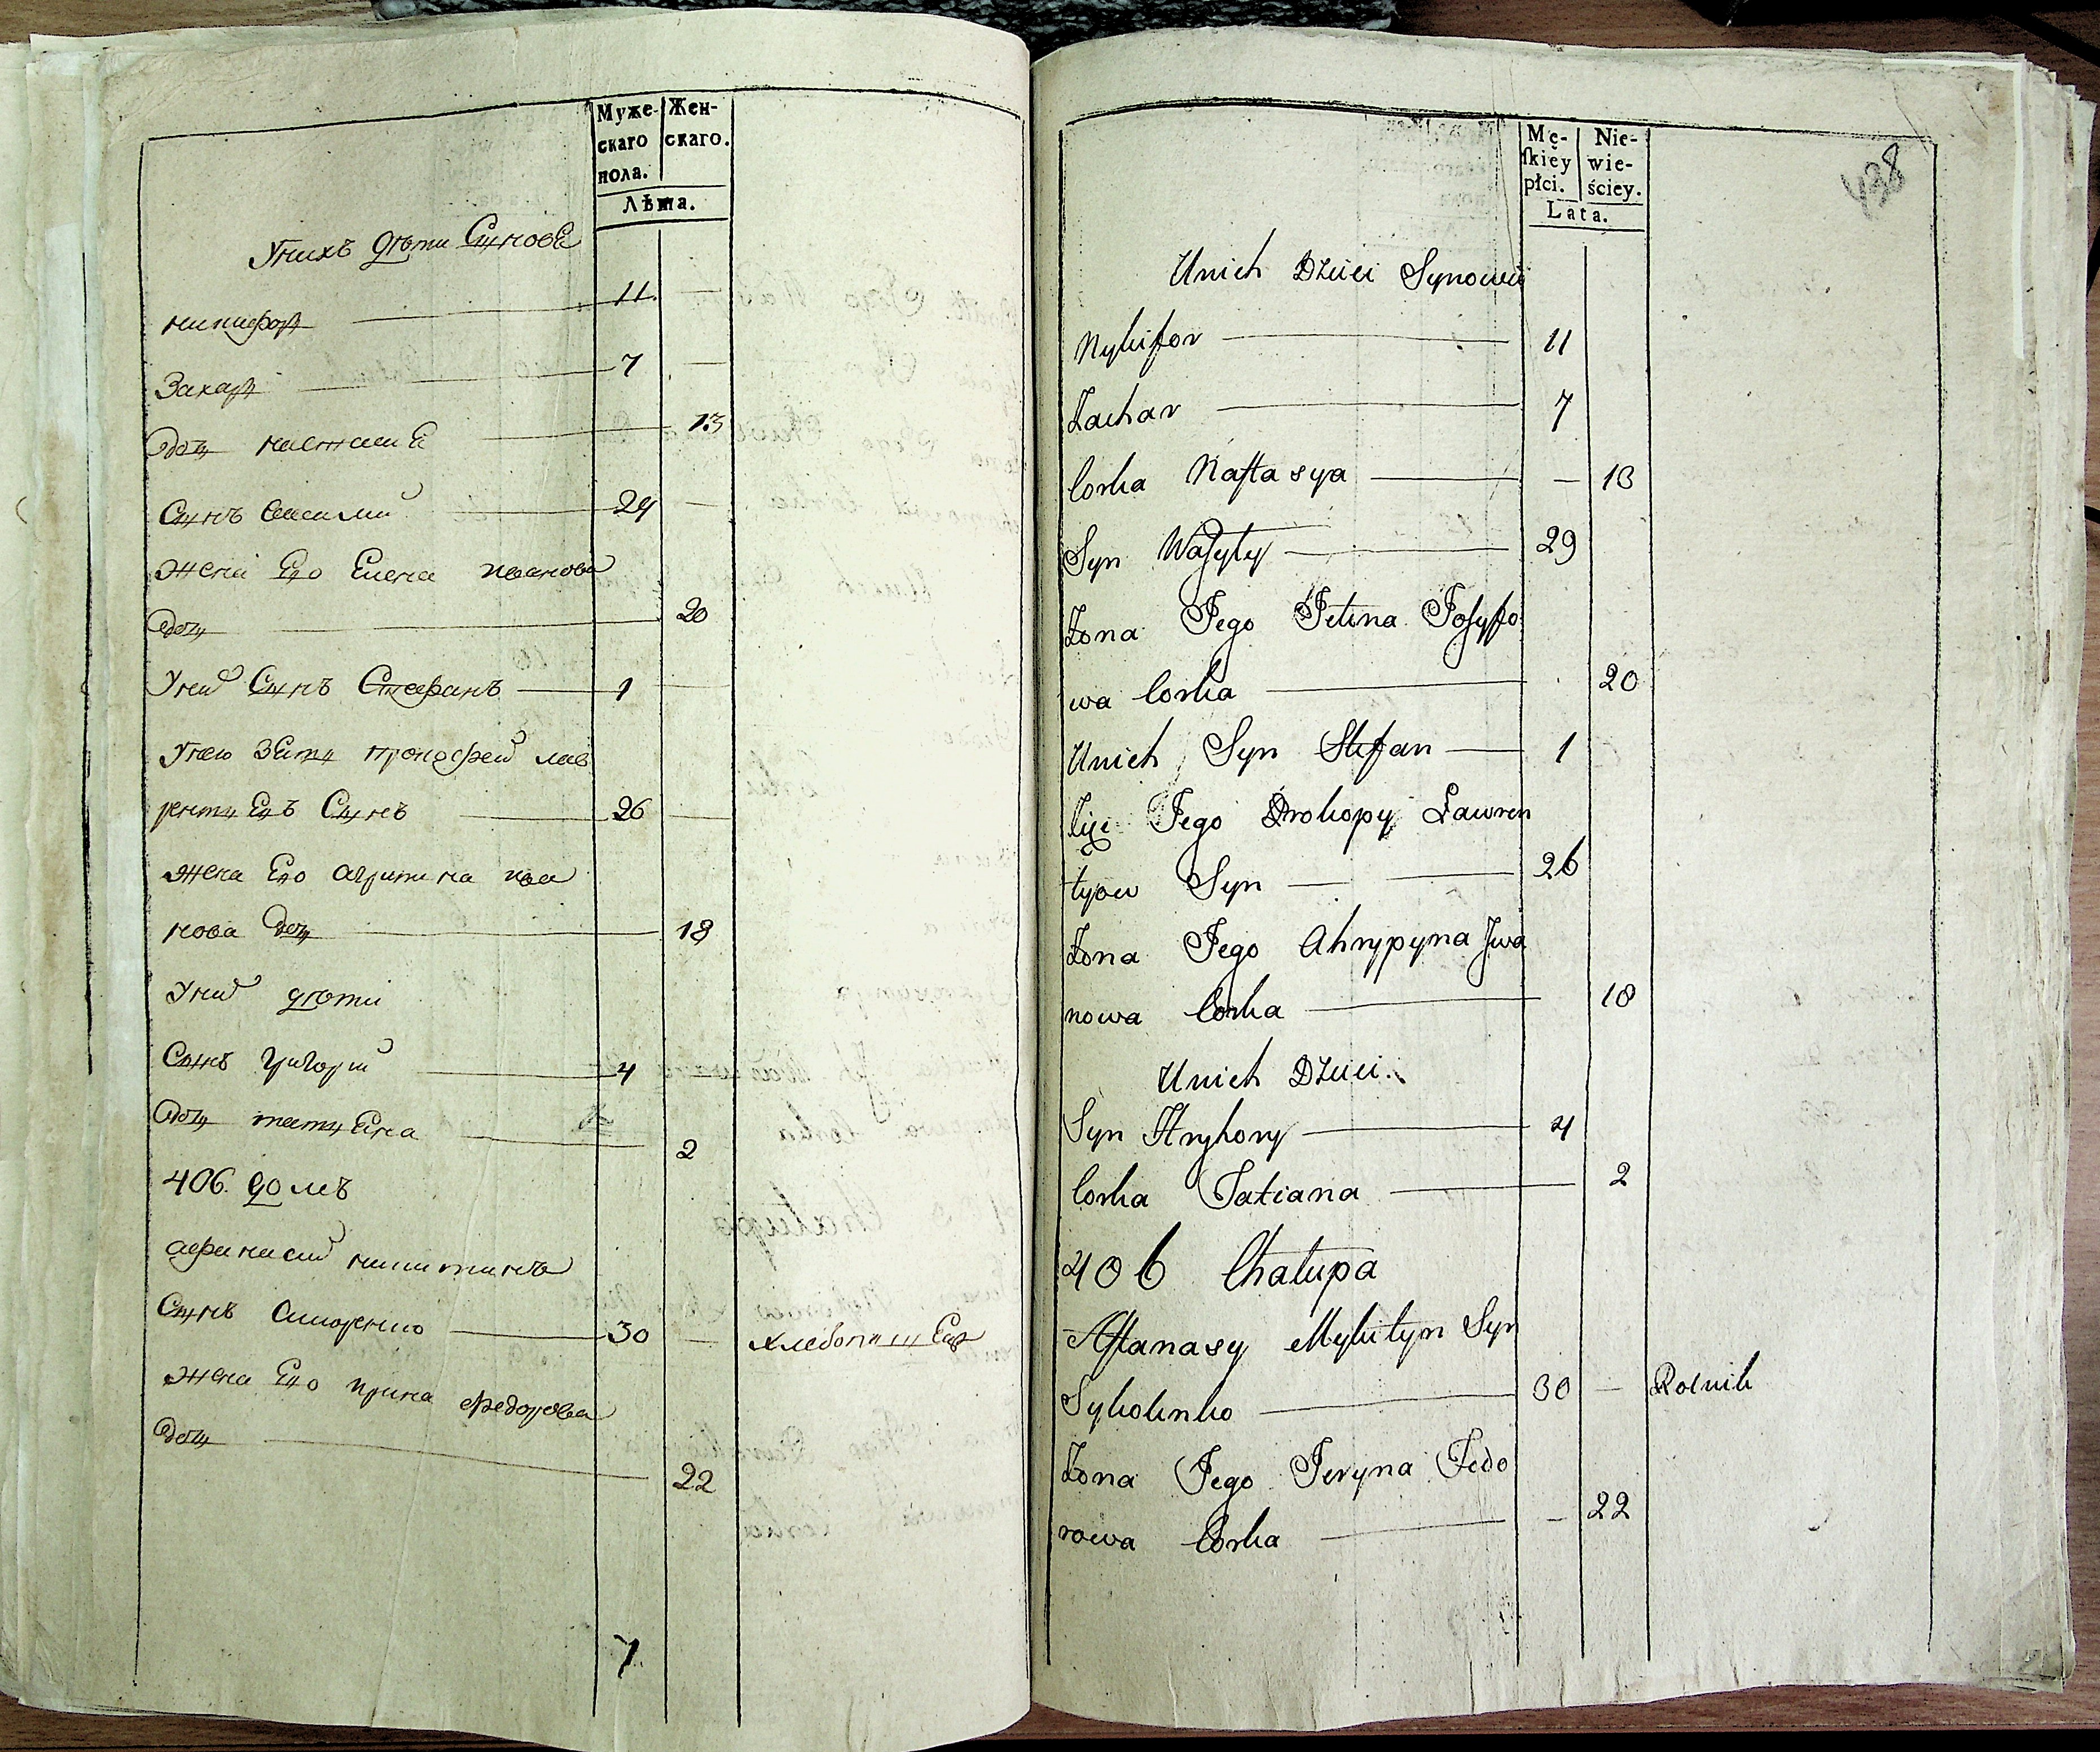 Муже-
скаго
пола.
Жен-
скаго.
Лѣта.
Унихъ дѣти Синовѣ
никифоръ 11
Захаръ 7 —
доч настасиѣ 13
Синъ василий 29 —
жена Его Елена иванова
доч 20
Уних Синъ Стефанъ 1 —
Унею Зять прокофей лав
рентиевъ Синъ 26 —
жена Его агрипина ива
нова доч 18
Уних дѣти
Синъ григорий 4
доч татиена 2
406. домъ
афанасий никитинъ
Синъ 30 — хлебопашец
жена Его ирина федорова
доч 22
7
438
Mę-
ſkiey
płci.
Nie-
wie-
ściey.
Lata.
Unich Dzieci Synowie
Nykifor 11
Zachar 7
Corka Naſtasya — 13
Syn Waſyly 29
Zona Jego Jelena Joſyfo
wa Corka 20
Unich Syn Stefan 1
Zięć Jego Prokopy Lawren
tyow Syn 26
Zona Jego Ahrypyna Jwa
nowa Corka 18
Unich Dzieci
Syn Hryhory 4
Corka Tatiana 2
406 Chałupa
Aftanasy Mykityn Syn
30 — Rolnik
Zona Jego Jeryna Fedo
rowa Corka — 22